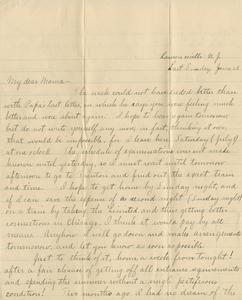 Lawrenceville N.J.
Last Sunday, June
My dear Mama—
The week could not have ended better than
with Papa's last letter, in which he says you were feeling much
better and were about again. I hope to hear again tomorrow
but do not write yourself any more, in fact, thinking it over,
that would be impossible, for I leave here Saturday (July
at 4 o'clock. The schedule of examinations was not made
known until yesterday, so I must wait until tomorrow
afternoon to go to Trenton and find out the exact train
and time. I hope to get home by Sunday night, and
if I can save the expense of a second night (Sunday night)
on a train by taking the Limited and thus getting better
connections in Chicago, I think it would pay by all
means. Anyhow I will go down and make arrangements
tomorrow, and let you know as soon as possible.
Just to think of it, home a week from tonight!
after a fair chance of getting off all entrance requirements
and spending the summer without a single pestiferous
condition! Two months ago I had no dream of the